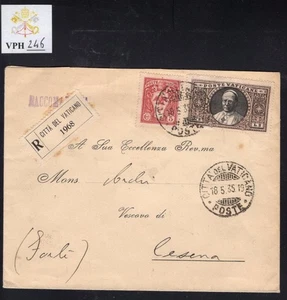 VPH 246
RACCOM
R
CITTÀ DEL VATICANO
1068
POSTE VATICANE
POSTE
A Sua Eccellenza Rev.ma
Mons André
CITTÀ DEL VATICANO
18.5.35.19
POSTE
Vescovo di
(Forlì) Cesena